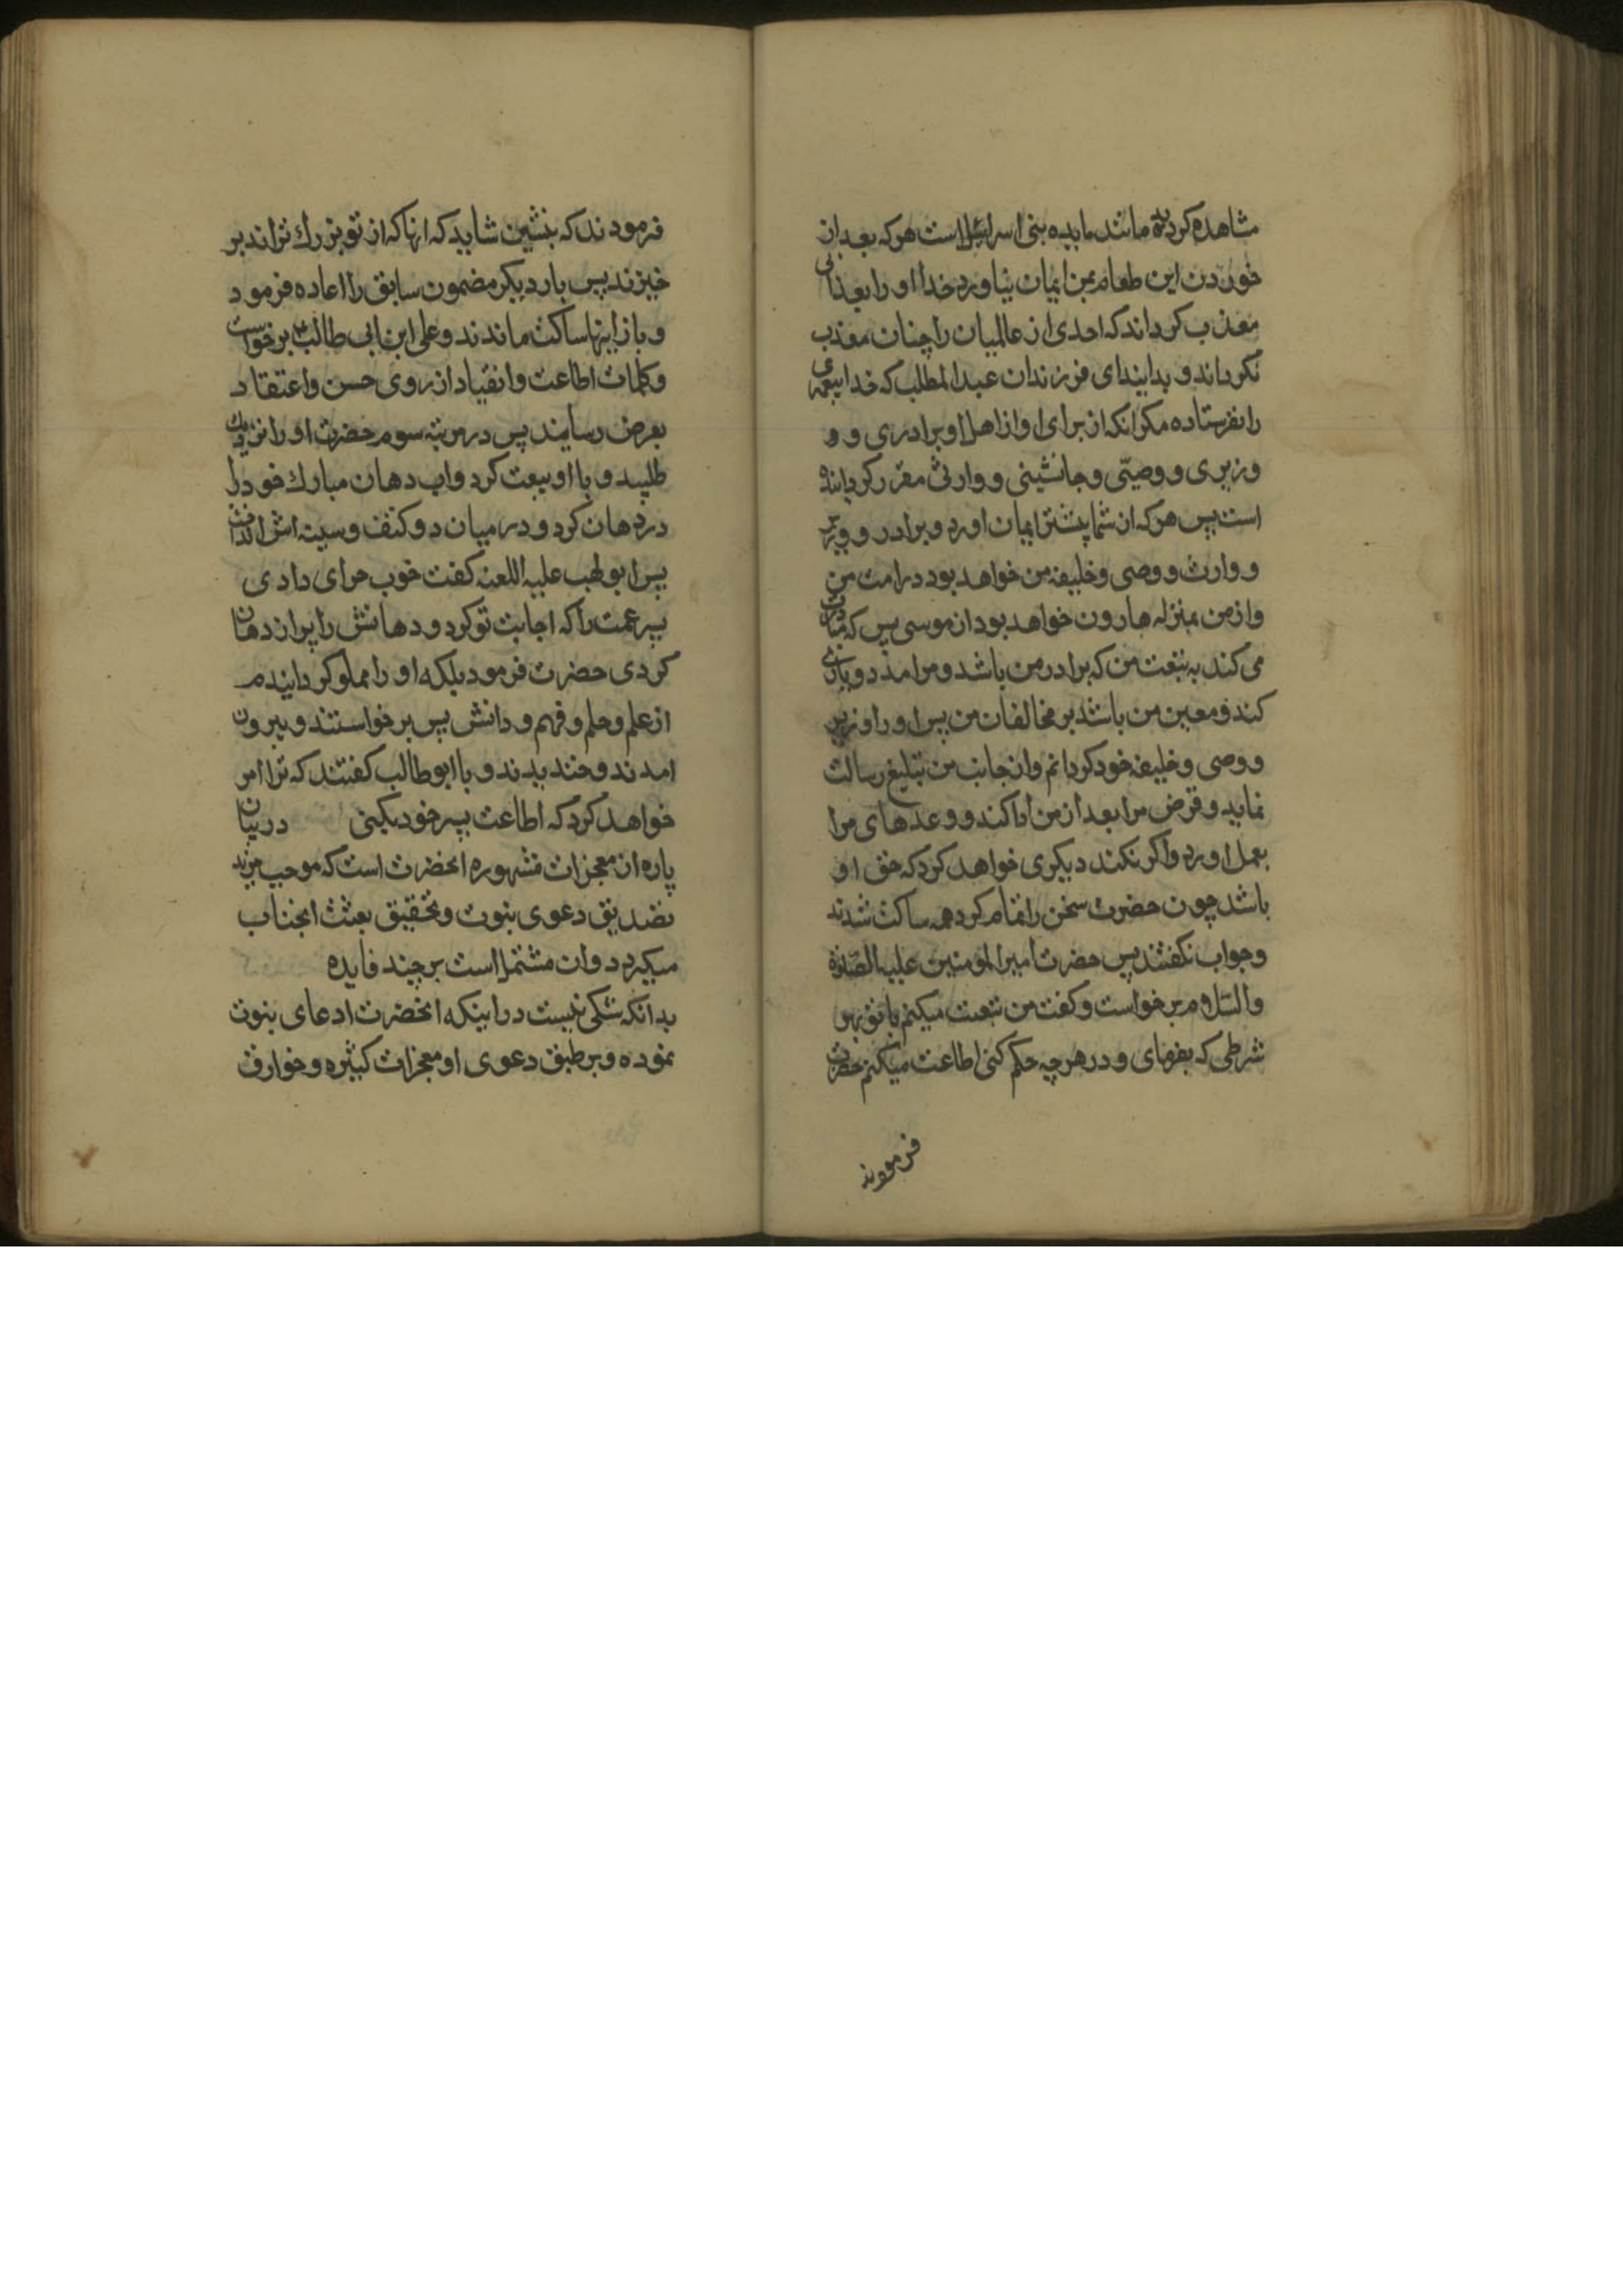 مشاهده کردید مانند مایده بنی اسرائیل است هر که بعد از
خوردن این طعام بمن ایمان نیاورد خدا او را بعذابی
معذب کرداند که احدی از عالمیان را چنان معذب
نکرداند و بدانید ای فرزندان عبدالمطلب که خدا پیغمبری
را نفرستاده مکر انکه از برای او از اهل او برادری و و
وزیری و وصیّی و جانشینی و وارثی مقرر کردانیده
است پس هر که از شما پیشتر ایمان اورد و برادر و وزیر
و وارث و وصی و خلیفه من خواهد بود در امت من
و از من بمنزله هارون خواهد بود از موسی پس که مبادرت
می کند به بیعت من که برادر من باشد و مرا مدد و یاری
کند و معین من باشد بر مخالفان من پس او را وزیر
و وصی و خلیفه خود کردانم و از جانب من تبلیغ رسالت
نماید و قرض مرا بعد از من ادا کند و وعدهای مرا
بعمل اورد و اکر نکند دیکری خواهد کرد که حق او
باشد چون حضرت سخن را تمام کرد همه ساکت شدند
و جواب نکفتند پس حضرت امیرالمومنین علیه الصلوة
والسّلام برخواست و کفت من بیعت میکنم با تو بهر
شرطی که بفرمای و در هر چه حکم کنی اطاعت میکنم حضرت
فرمودند
فرمودند که بنشین شاید که انها که از تو بزرك تراند بر
خیزند پس بار دیکر مضمون سابق را اعاده فرمود
و باز اینها ساکت ماندند و علی ابن ابی طالب ع برخواست
و کلمات اطاعت و انقیاد از روی حسن و اعتقاد
بعرض رسانید پس در مرتبه سوم حضرت او را نزدیك
طلبید و با او بیعت کرد و اب دهان مبارك خود را
در دهان کرد و در میان دو کتف و سینه اش انداخت
پس ابو لهب علیه اللعنه کفت خوب جزای دادی
پسر عمت را که اجابت تو کرد و دهانش را پر از دهان
کردی حضرت فرمود بلکه او را مملو کردانیدم
از علم و حلم و فهم و دانش پس برخواستند و بیرون
امدند و خندیدند و با ابو طالب کفتند که ترا امر
خواهد کرد که اطاعت پسر خود بکنی در بیان
پاره از معجزات مشهوره انحضرت است که موجب مزید
تصدیق دعوی نبوت و تحقیق بعثت انجناب
میکردد و ان مشتمل است بر چند فایده
بدانکه شکی نیست در اینکه انحضرت ادعای نبوت
نموده و بر طبق دعوی او معجزات کثیره و خوارق